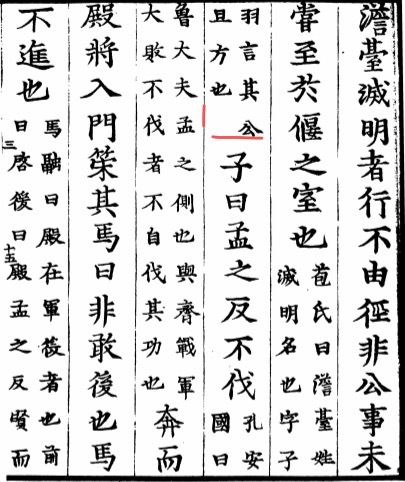 澹臺滅明者行不由徑非公事未
嘗至扵偃之室也
苞氏曰澹臺姓
滅明名也字子
羽言其公
且方也
子曰孟之反不伐
孔安
國曰
魯大夫孟之側也與齊戰軍
大敗不伐者不自伐其功也
奔而
殿將入門筞其馬曰非敢後也馬
不進也
馬融曰殿在軍後者也前
曰啓後曰殿孟之反賢而
三
十五